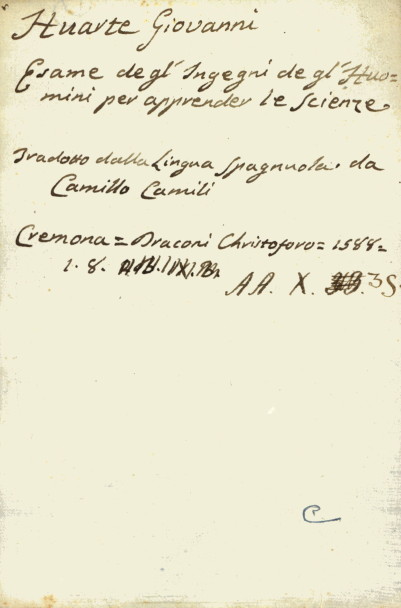 Huarte Giovanni
Esame degl' Ingegni de gl' Huo=
mini per apprender le Scienze.
Tradotto dalla Lingua Spagnuola. da
Camillo Camili
Cremona = Draconi Christoforo = 1588 =
1. 8.
AA. X. 35.
C